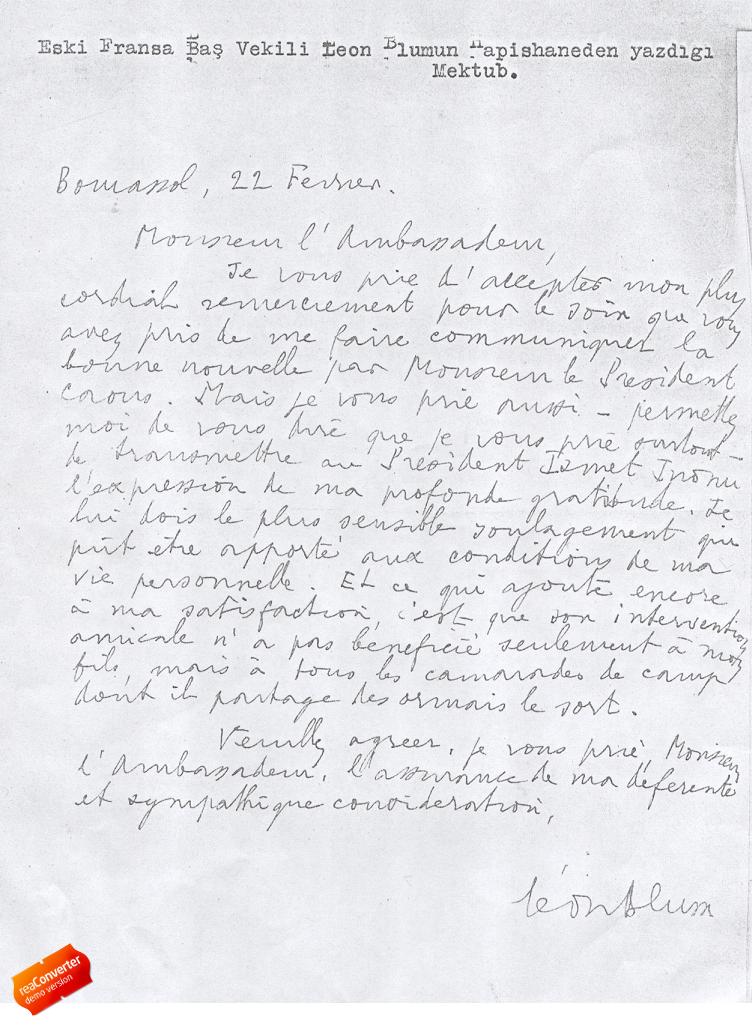 Eski Fransa Baş Vekili Leon Blumun Hapishaneden yazdıgı
Mektub.
22 Fevrier.
Monsieur l'Ambassadeur,
Je vous prie d'accepter mon plus
cordial remerciement pour le soin que vous
avez pris de me faire communiquer la
bonne nouvelle par Monsieur le President
. Mais je vous prie aussi - permettez
moi de vous dire que je vous prie surtout -
de transmettre au President Ismet Inonu
l'expression de ma profonde gratitude. Je
lui dois le plus sensible soulagement qui
pût être apporté aux conditions de ma
vie personnelle. Et ce qui ajoute encore
à ma satisfaction, c'est que son intervention
amicale n'a pas béneficié seulement à mon
fils, mais à tous les camarades de camp
dont il partage des ormais le sort.
Veuillez agreer, je vous prie, Monsieur
l'Ambassadeur, l'assurance de ma deferente
et sympathique consideration,
Léon Blum
reaConverter
demo version